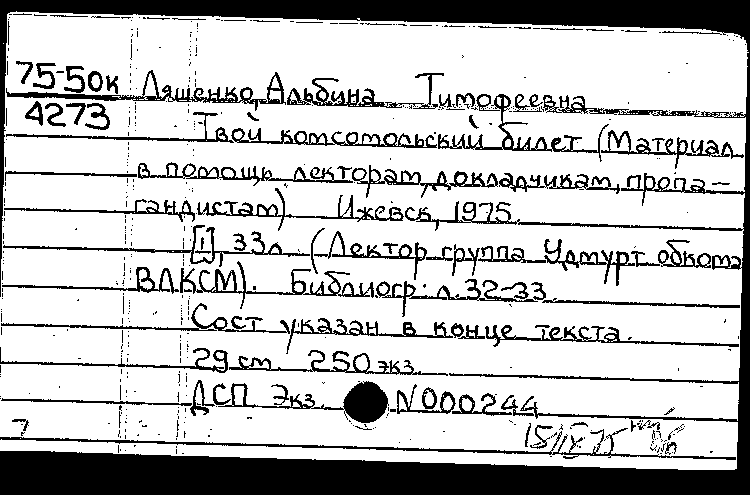 75-50к Ляшенко, Альбина Тимофеевна
4273
Твой комсомольский билет (Материал
в помощь лекторам, докладчикам, пропа-
гандистам). Ижевск, 1975.
[1], 33л. (Лектор группа Удмурт обкома
ВЛКСМ). Библиогр: л. 32-33.
Сост указан в конце текста.
29 см. 250 экз.
ДСП Экз. N000244
15/IX 75
7